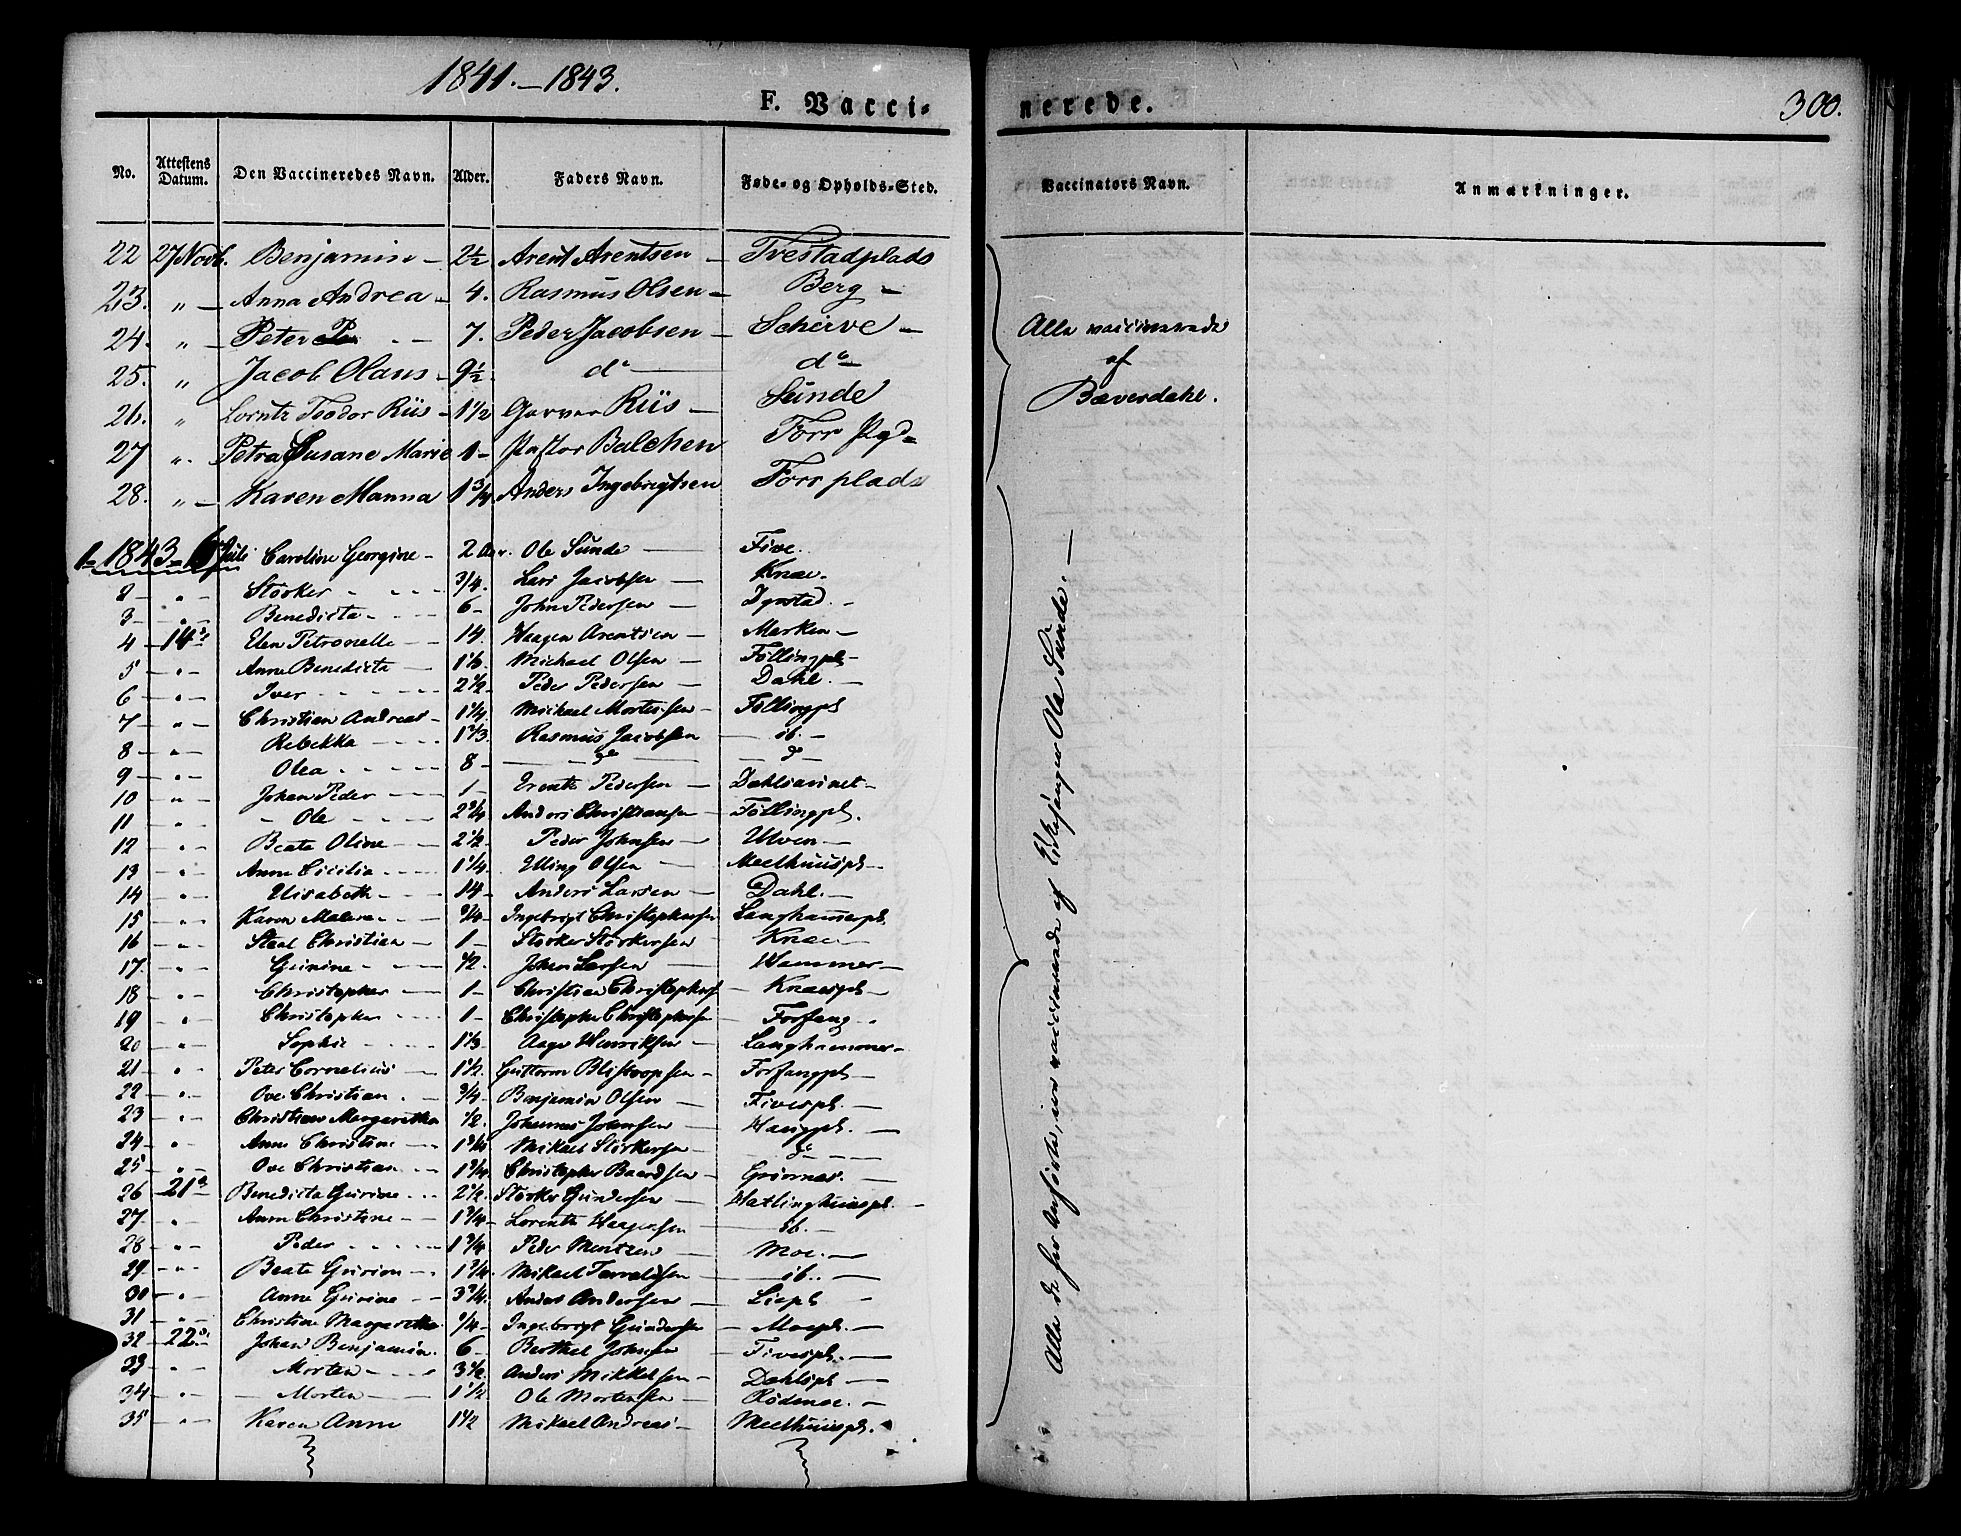 1841.—1843.
F. Vacci-
nerede.
300.
No. Attestens Datum. Den Vaccineredes Navn. Alder. Faders Navn. Føde- og Opholds-Sted. Vaccinators Navn. Anmærkninger.
22 27 Novb. Benjamin — 2½ Arent Arentsen — Tvestadplads
23. " — Anna Andrea — 4. Rasmus Olsen — Berg —
24. " — Peter — 7. Peder Jacobsen — Scherve —
25. " Jacob Olaus — 9½ do — do
26. " Lorntz Teodor Riis — 1½ Riis — Sunde
27 " Petra Susane Marie 1 — Pastor Balchen Forr
28. " — Karen Manna 1¾ Anders Ingebrigtsen Forrplads
Alle vaccinerede
af
Bæverdahl.
1 — 1843 — 6 Juli Caroline Georgine — 2 Ole Sunde — Five.
2 — " — Størker — 3/4. Lars Jacobsen — Knae.
3 — " — Benedicta — 6 — John Pedersen — Dyrstad. —
4 — 14 Elen Petronelle — 14. Haagen Arentsen — Marken —
5 — " — Anne Benedicta — Michael Olsen — Føllingpl —
6 — " — Iver — 2½ Peder Pedersen — Dahl. —
7 — " — Christian Andreas — 1¼ Michael Mortensen — Føllingpl
8 — " — Rebekka — 1⅔ Rasmus Jacobsen — ib. —
9 — " — Olea — 8 — do — do
10 — " — Johan Peder — 1 — Pedersen — Dahlsaunet —
11 — " — Ole — 2¾ Anders Christiansen — Føllingpl.
12 — " — Beate Oline — 2½ Peder Johnsen — Ulven —
13 — " — Anne Cicilia — 1¼ Elling Olsen — Meelhuuspl —
14 — " — Elisabeth — 14 — Anders Larsen — Dahl. —
15 — " — Karen Malene — ¾ — Ingebrigt Christophersen Langhammerpl.
16 — " — Christian — 1 — Størker Størkersen — Knae —
17. — " — Gurine — ½. Johan Larsen — Hammer —
18 — " — Christopher — 1 — Christian Christophers. — Knaespl —
19 — " — Christopher — 1 — Christopher Christophersen — Forfang
20 — " — Sophie — 1⅓ Aage Henriksen — Langhammer —
21 — " — Peter Cornelius — 1½. Guttorm — Forfangpl —
22 — " — Ove Christian — ¾ — Benjamin Olsen — Fivespl. —
23 — " — Christian Margaretha ½. Johannes Johnsen — Haugpl. —
24 — " — Anne Christine — 1¾ Mikael Størkersen — do —
25 — " — Ove Christian — 1¾ Christopher Baardsen —
26 — 21 — Benedicta Gurine — 2½. Størker Gundersen — Hatlinghuuspl. —
27 — " — Anne Christine — 1¾ — Lorents Haagensen — ib. —
28 — " — Peder — 1¾ Peder Mentzen — Moe. —
29 — " — Beate — 1¾. Mikael — ib. —
30 — " — Anne Gurine — 3¾. Anders Andersen — Liepl —
31 — " — Christine Margaretha ¾ — Ingebrigt Gundersen — Moepl. —
32 — 22 — Johan Benjamin. 6 — Berthel Johnsen — Fivespl. —
33 — " — Morten — 3½ Anders Mikkelsen — Dahlspl —
34 — " — Morten — 1½ Ole Mortensen — —
35 — " — Karen Anne 1½ Mikael Andreas — Meelhuuspl. —
Alle de her anførte, ere vaccinerede af Kirkesanger Ole Sunde. —